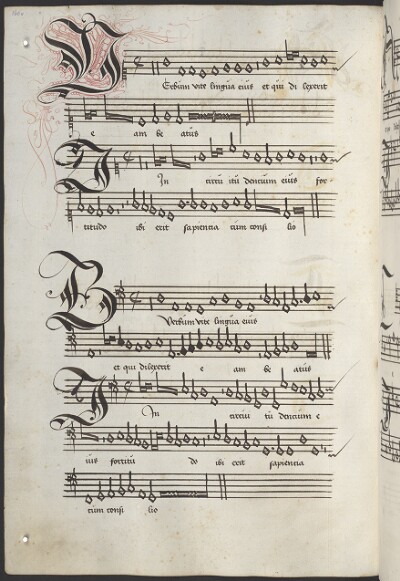 Verbum vite lingua eius et qui di lexerit
e am be atus
In circu itu dencium eius for-
titudo ibi erit sapiencia cum consi lio
Verbum vite lingua eius
et qui dilexerit e am be atus
In circui tu dencium e
ius fortitu do ibi erit sapiencia
cum consi lio